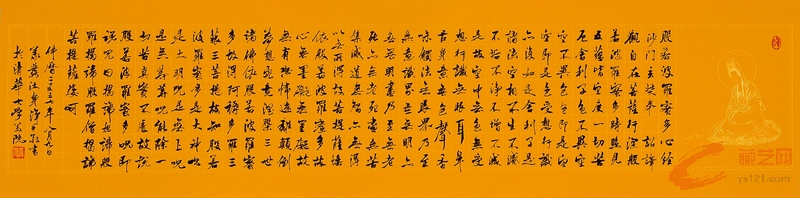 般若波羅蜜多心經
沙門玄奘奉 詔譯
觀自在菩薩行深般
若波羅蜜多時照見
五蘊皆空度一切苦
厄舍利子色不異空
空不異色色即是空
空即是色受想行識
亦復如是舍利子是
諸法空相不生不滅
不垢不淨不增不減
是故空中無色無受
想行識無眼耳鼻
舌身意無色聲香
味觸法無眼界乃至
無意識界無無明亦
無無明盡乃至無老
死亦無老死盡無苦
集滅道無智亦無得
以無所得故菩提薩埵
依般若波羅蜜多故
心無罣礙無罣礙故
無有恐怖遠離顛倒
夢想究竟涅槃三世
諸佛依般若波羅蜜
多故得阿耨多羅三
藐三菩提故知般若
波羅蜜多是大神呪
是大明呪是無上呪
是無等等呪能除一
切苦真實不虛故說
般若波羅蜜多呪即
說呪曰揭諦揭諦般
羅揭諦般羅僧揭諦
菩提薩婆訶
佛曆二五五七年八月九日
淨手敬書
於清華大學美院
ys121.com